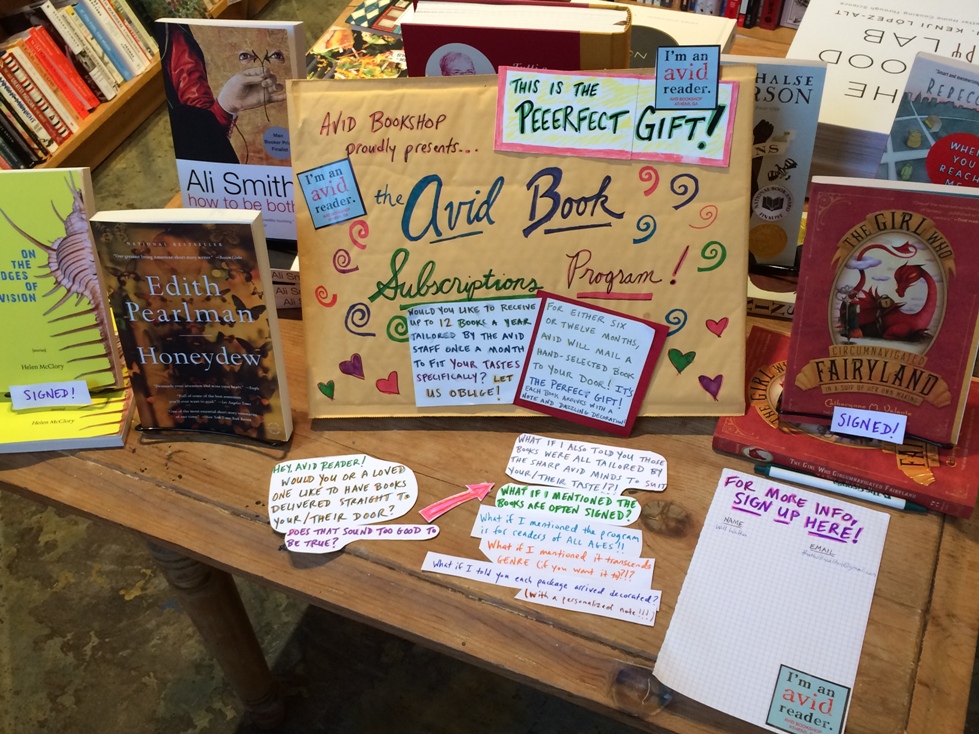 KENJI LÓPEZ-ALT
THE
FOOD
LAB
Man
Booker Prize
Finalist
Ali Smith
how to be both
Ali Smith
I'm an
avid
reader.
AVID BOOKSHOP
ATHENS, GA
THIS IS THE
PEEERFECT GIFT!
AVID BOOKSHOP
proudly presents...
I'm an
avid
reader.
the Avid Book
Subscriptions Program!
WOULD YOU LIKE TO RECEIVE
UP TO 12 BOOKS A YEAR
TAILORED BY THE AVID
STAFF ONCE A MONTH
TO FIT YOUR TASTES
SPECIFICALLY? LET
US OBLIGE!
FOR EITHER SIX
OR TWELVE MONTHS,
AVID WILL MAIL A
HAND-SELECTED BOOK
TO YOUR DOOR! IT'S
THE PERFECT GIFT!
EACH BOOK ARRIVES WITH A
NOTE AND DAZZLING DECORATION!
ON THE
EDGES OF
VISION
Helen McClory
SIGNED!
Helen McClory
NATIONAL BESTSELLER
Edith
Pearlman
Honeydew
REBECCA
WHEN
YOU
REACH
ME
THE GIRL WHO
CIRCUMNAVIGATED
FAIRYLAND
IN A SHIP OF HER OWN MAKING
SIGNED!
THE GIRL WHO CIRCUMNAVIGATED FAIRYLAND
HEY, AVID READER!
WOULD YOU OR A LOVED
ONE LIKE TO HAVE BOOKS
DELIVERED STRAIGHT TO
YOUR/THEIR DOOR?
DOES THAT SOUND TOO GOOD TO
BE TRUE?
WHAT IF I ALSO TOLD YOU THOSE
BOOKS WERE ALL TAILORED BY
THE SHARP AVID MINDS TO SUIT
YOUR/THEIR TASTE!?!
WHAT IF I MENTIONED THE
BOOKS ARE OFTEN SIGNED?
What if I mentioned the program
is for readers of ALL AGES?!!
What if I mentioned it transcends
GENRE (if you want it to)?!?
What if I told you each package arrived decorated?
(With a personalized note!!!)
FOR MORE INFO,
SIGN UP HERE!
NAME
EMAIL
I'm an
avid
reader.
AVID BOOKSHOP